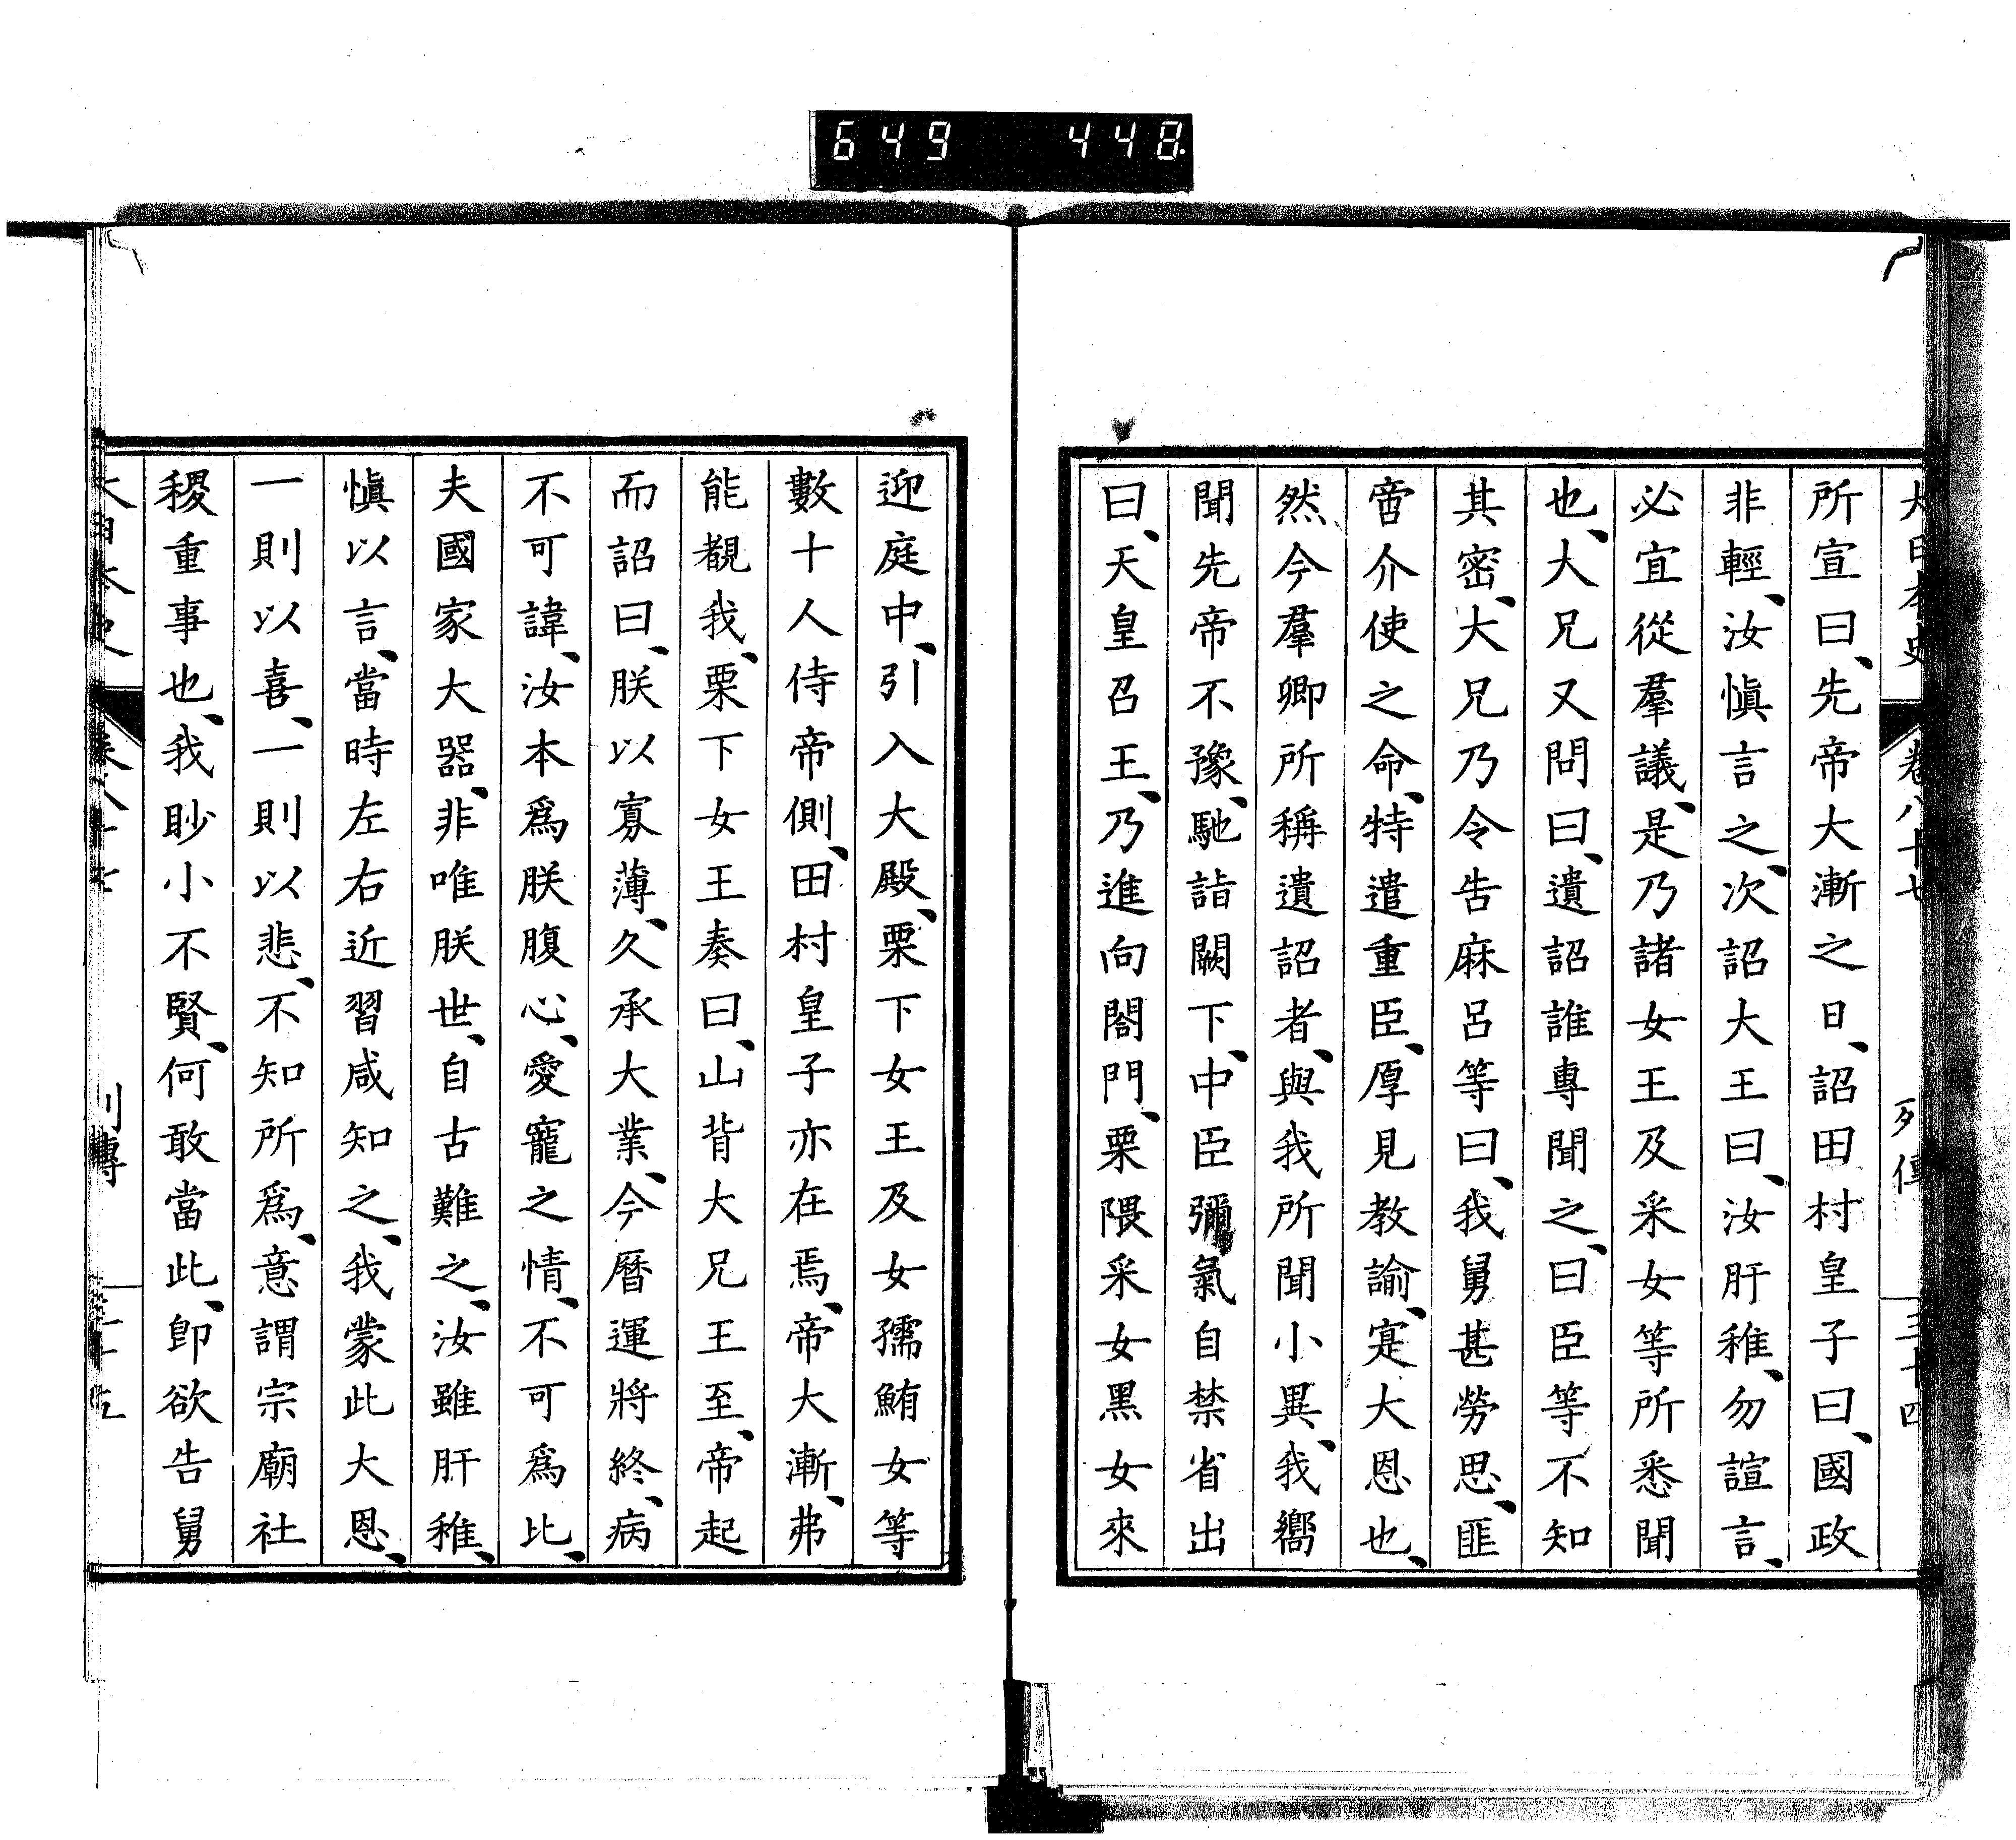 649 448
大日本史 卷八十七 列傳 三十四
所宣曰、先帝大漸之日、詔田村皇子曰、國政
非輕、汝愼言之、次詔大王曰、汝肝稚、勿諠言、
必宜從羣議、是乃諸女王及采女等所悉聞
也、大兄又問曰、遺詔誰專聞之、曰臣等不知
其密、大兄乃令告麻呂等曰、我舅甚勞思、匪
啻介使之命、特遣重臣、厚見教諭、寔大恩也、
然今羣卿所稱遺詔者、與我所聞小異、我嚮
聞先帝不豫、馳詣闕下、中臣彌氣自禁省出
曰、天皇召王、乃進向閤門、栗隈采女黑女來
迎庭中、引入大殿、栗下女王及女孺鮪女等
數十人侍帝側、田村皇子亦在焉、帝大漸、弗
能覩我、栗下女王奏曰、山背大兄王至、帝起
而詔曰、朕以寡薄、久承大業、今曆運將終、病
不可諱、汝本爲朕腹心、愛寵之情、不可爲比、
夫國家大器、非唯朕世、自古難之、汝雖肝稚、
愼以言、當時左右近習咸知之、我蒙此大恩、
一則以喜、一則以悲、不知所爲、意謂宗廟社
稷重事也、我眇小不賢、何敢當此、卽欲告舅
大日本史 卷八十七 列傳 三十五